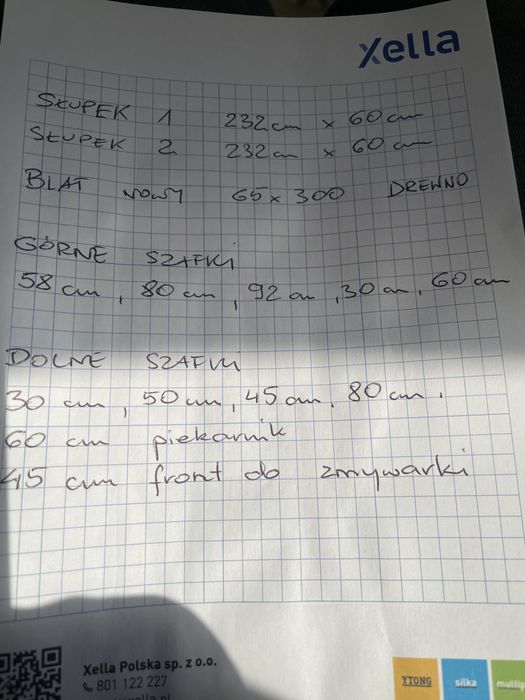 xella
SŁUPEK 1 232 cm x 60 cm
SŁUPEK 2 232 cm x 60 cm
BLAT NOWY 65 x 300 DREWNO
GÓRNE SZAFKI
58 cm, 80 cm, 92 cm, 30 cm, 60 cm
DOLNE SZAFKI
30 cm, 50 cm, 45 cm, 80 cm.
60 cm piekarnik
45 cm front do zmywarki
Xella Polska sp. z o.o.
801 122 227
YTONG silka